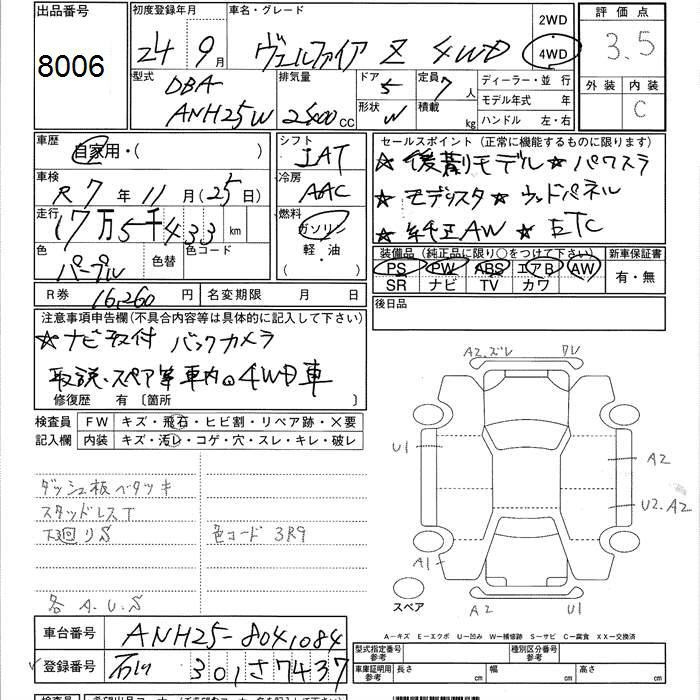 出品番号 初度登録年月 車名・グレード 2WD 評価点
8006 24年9月 ヴェルファイア Z 4WD 4WD 3.5
型式 排気量 ドア 定員 ディーラー・並行 外装 内装
DBA- ANH25W 2400CC 5 7人 モデル年式 年 C
形状 W 積載 kg ハンドル 左・右
車歴 シフト セールスポイント (正常に機能するものに限ります)
自家用・( ) IAT ☆後期モデル☆パワスラ
車検 冷房 ☆モデリスタ☆ウッドパネル
R7年11月(25日) AAC ☆純正AW☆ETC
走行 燃料 装備品 (純正品に限り○をつけて下さい) 新車保証書
17万5千433km ガソリン PS PW ABS エアB AW 有・無
色 色替 色コード 軽・油 SR ナビ TV カワ
パープル 後日品
R券 16,260円 名変期限 月 日
注意事項申告欄(不具合内容等は具体的に記入して下さい)
☆ナビ取付 バックカメラ
取説、スペア等車内。4WD車
修復歴 有〔箇所 〕
検査員 FW キズ・飛石・ヒビ割・リペア跡・×要
記入欄 内装 キズ・汚レ・コゲ・穴・スレ・キレ・破レ
A2.ズレ ワレ
U1 A2
U2.A2
A1
A2 U1
スペア
ダッシュ板ベタツキ
スタッドレスT
下回りS 色コード 3R9
各 A.U.S
A-キズ E-エクボ U-凹み W-補修跡 S-サビ C-腐食 XX-交換済
車台番号 ANH25-8041084 型式指定番号 参考 種別区分番号 参考
登録番号 石川 301さ7437 車庫証明用 参考 長さ cm 幅 cm 高さ cm
検査員